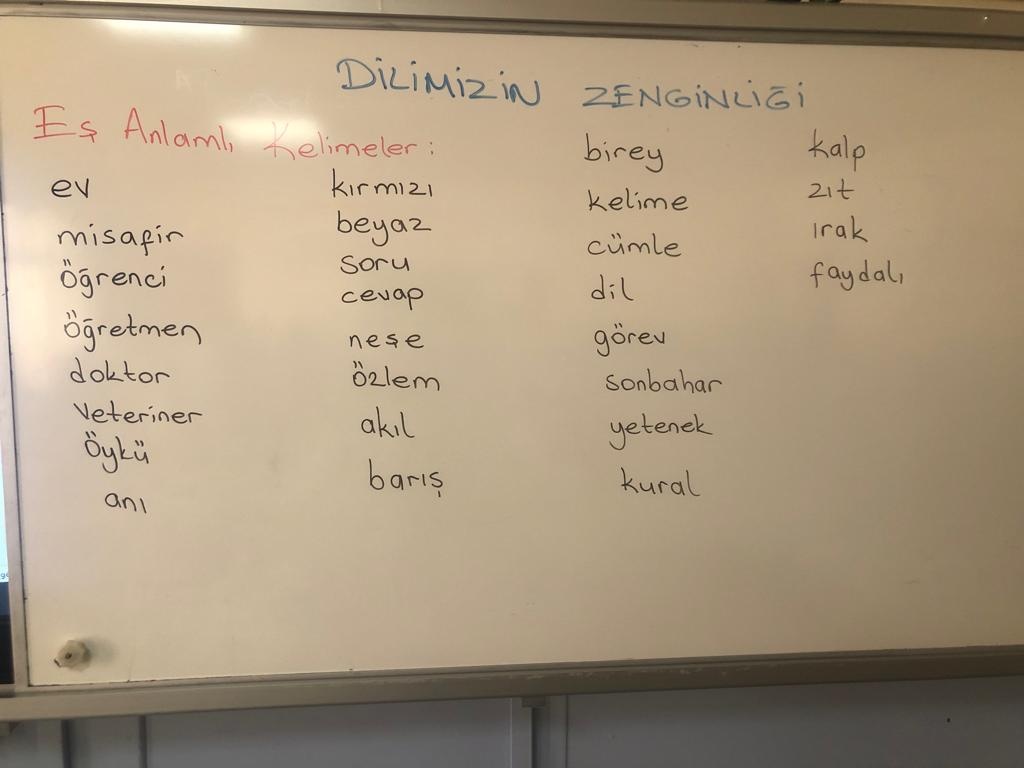 DİLİMİZİN ZENGİNLİĞİ
Eş Anlamlı Kelimeler:
ev
misafir
öğrenci
öğretmen
doktor
veteriner
öykü
anı
kırmızı
beyaz
soru
cevap
neşe
özlem
akıl
barış
birey
kelime
cümle
dil
görev
sonbahar
yetenek
kural
kalp
zıt
ırak
faydalı